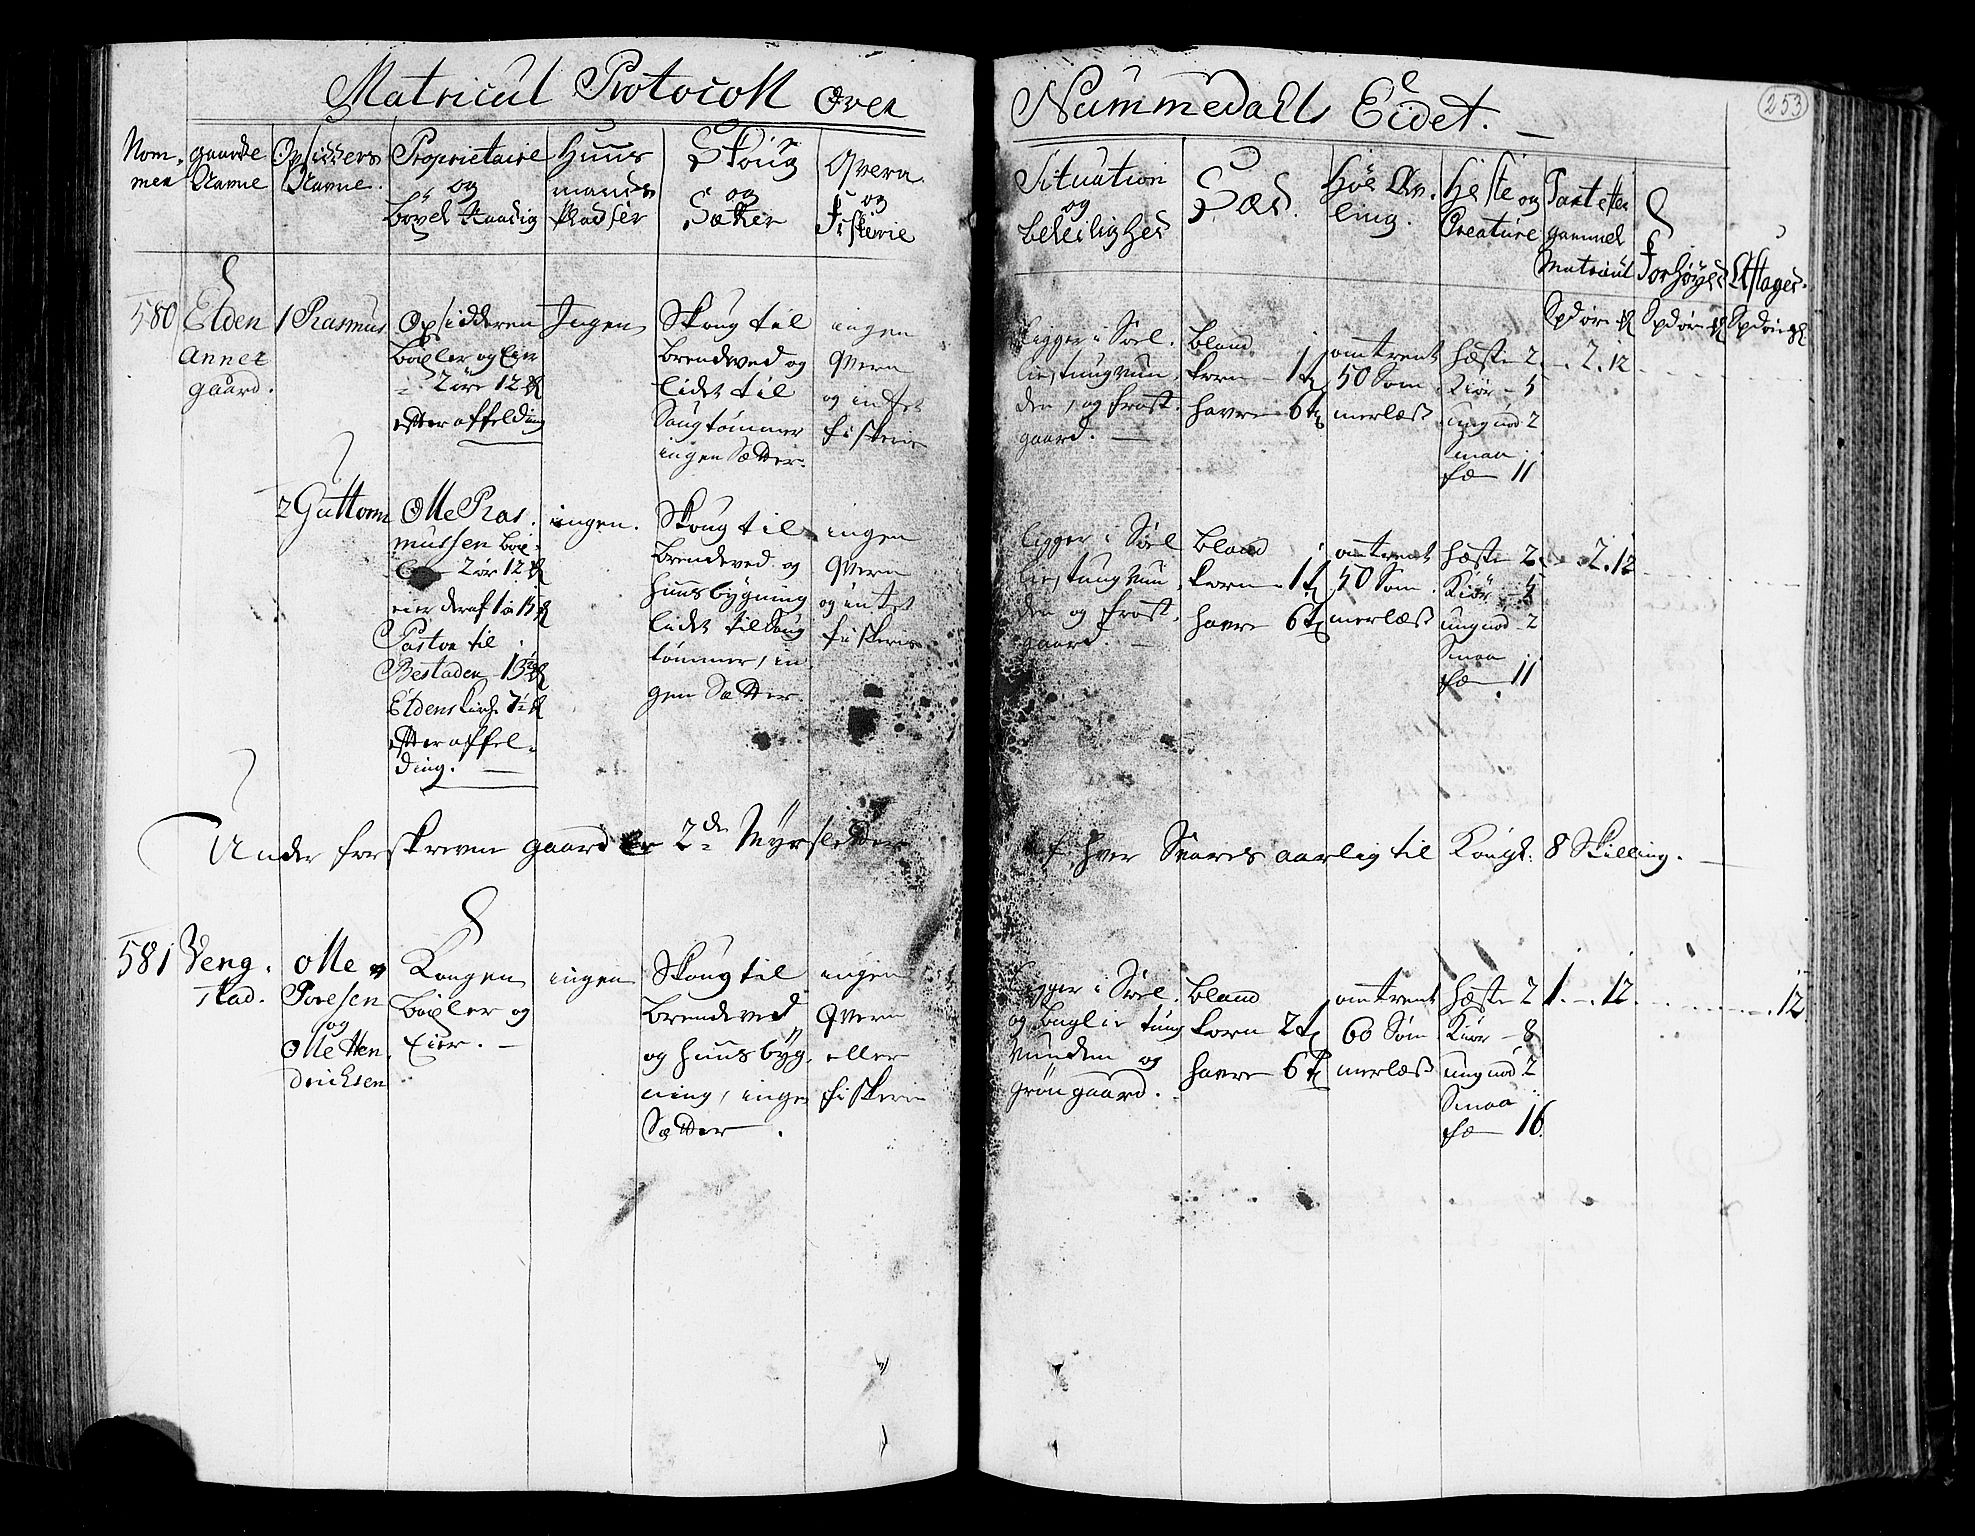 Matricul Protocoll over Nummedals Eidet.
253
Nom-
mer
gaarde
Navne
Opsidders
Navne.
Proprietaire
og
böxel Raadig
Huus
mands
Pladser
Skoug
og
Sætter
Qvern
og
Fiskerie
Situation
og
beleilighed
Sæd.
Höe Av-
ling.
Heste og
Creature
Taxt efter
gammel
Matricul
Forhöyed
Aftaged.
Spd ör
Spd ör
Spd ör
580
Elden
Annet
gaard.
1 Rasmus
Opsidderen
böxler og Eier
2 öre 12
efter affelding
Ingen
Skoug til
brendeved og
lidet til
Saugtömmer
ingen Sætter.
ingen
Qvern
og intet
fiskerie
ligger i Soel-
lie, tungvun-
den, og frost-
gaard.
bland
korn 1 t
havre 6 t
omtrent
50 Som-
merlæss
hæste 2
Kiör 5
ungnöd 2
smaa
fæ 11
2.12
2 Guttorm
Olle Ras-
mussen böx-
2 ör 12
eier deraf 1
Pastor til
Bestaden 13
Eldens Kirche 7½
efter affel-
ding.
ingen.
Skoug til
brendeved og
huusbygning
lidet til Saug
tömmer, in-
gen Sætter.
ingen
Qvern
og intet
fiskerie
ligger i Soel
lie, tungvun-
den og frost-
gaard
bland
korn 1 t
havre 6 t
omtrent
50 Som-
merlæss
hæste 2
Kiör 5
ungnöd 2
Smaa
fæ 11
2.12
Under forskrevne gaard er 2de Myrsletter
af hver Svares aarlig til Kongl: 8 Skilling.
581
Veng-
stad.
Olle
Povelsen
og
Olle Hen-
drichsen
Kongen
böxler og
Eier.
ingen
Skoug til
brendeved
og huusbyg-
ning, ingen
Sætter.
ingen
Qvern
eller
fiskerie
ligger i Soel-
og baglie tung
vunden og
grön gaard.
bland
korn 2 t
havre 6 t
omtrent
60 Som-
merlæss
hæste 2
Kiör 8
ungnöd 2
Smaa
fæ 16.
1.-.12
12